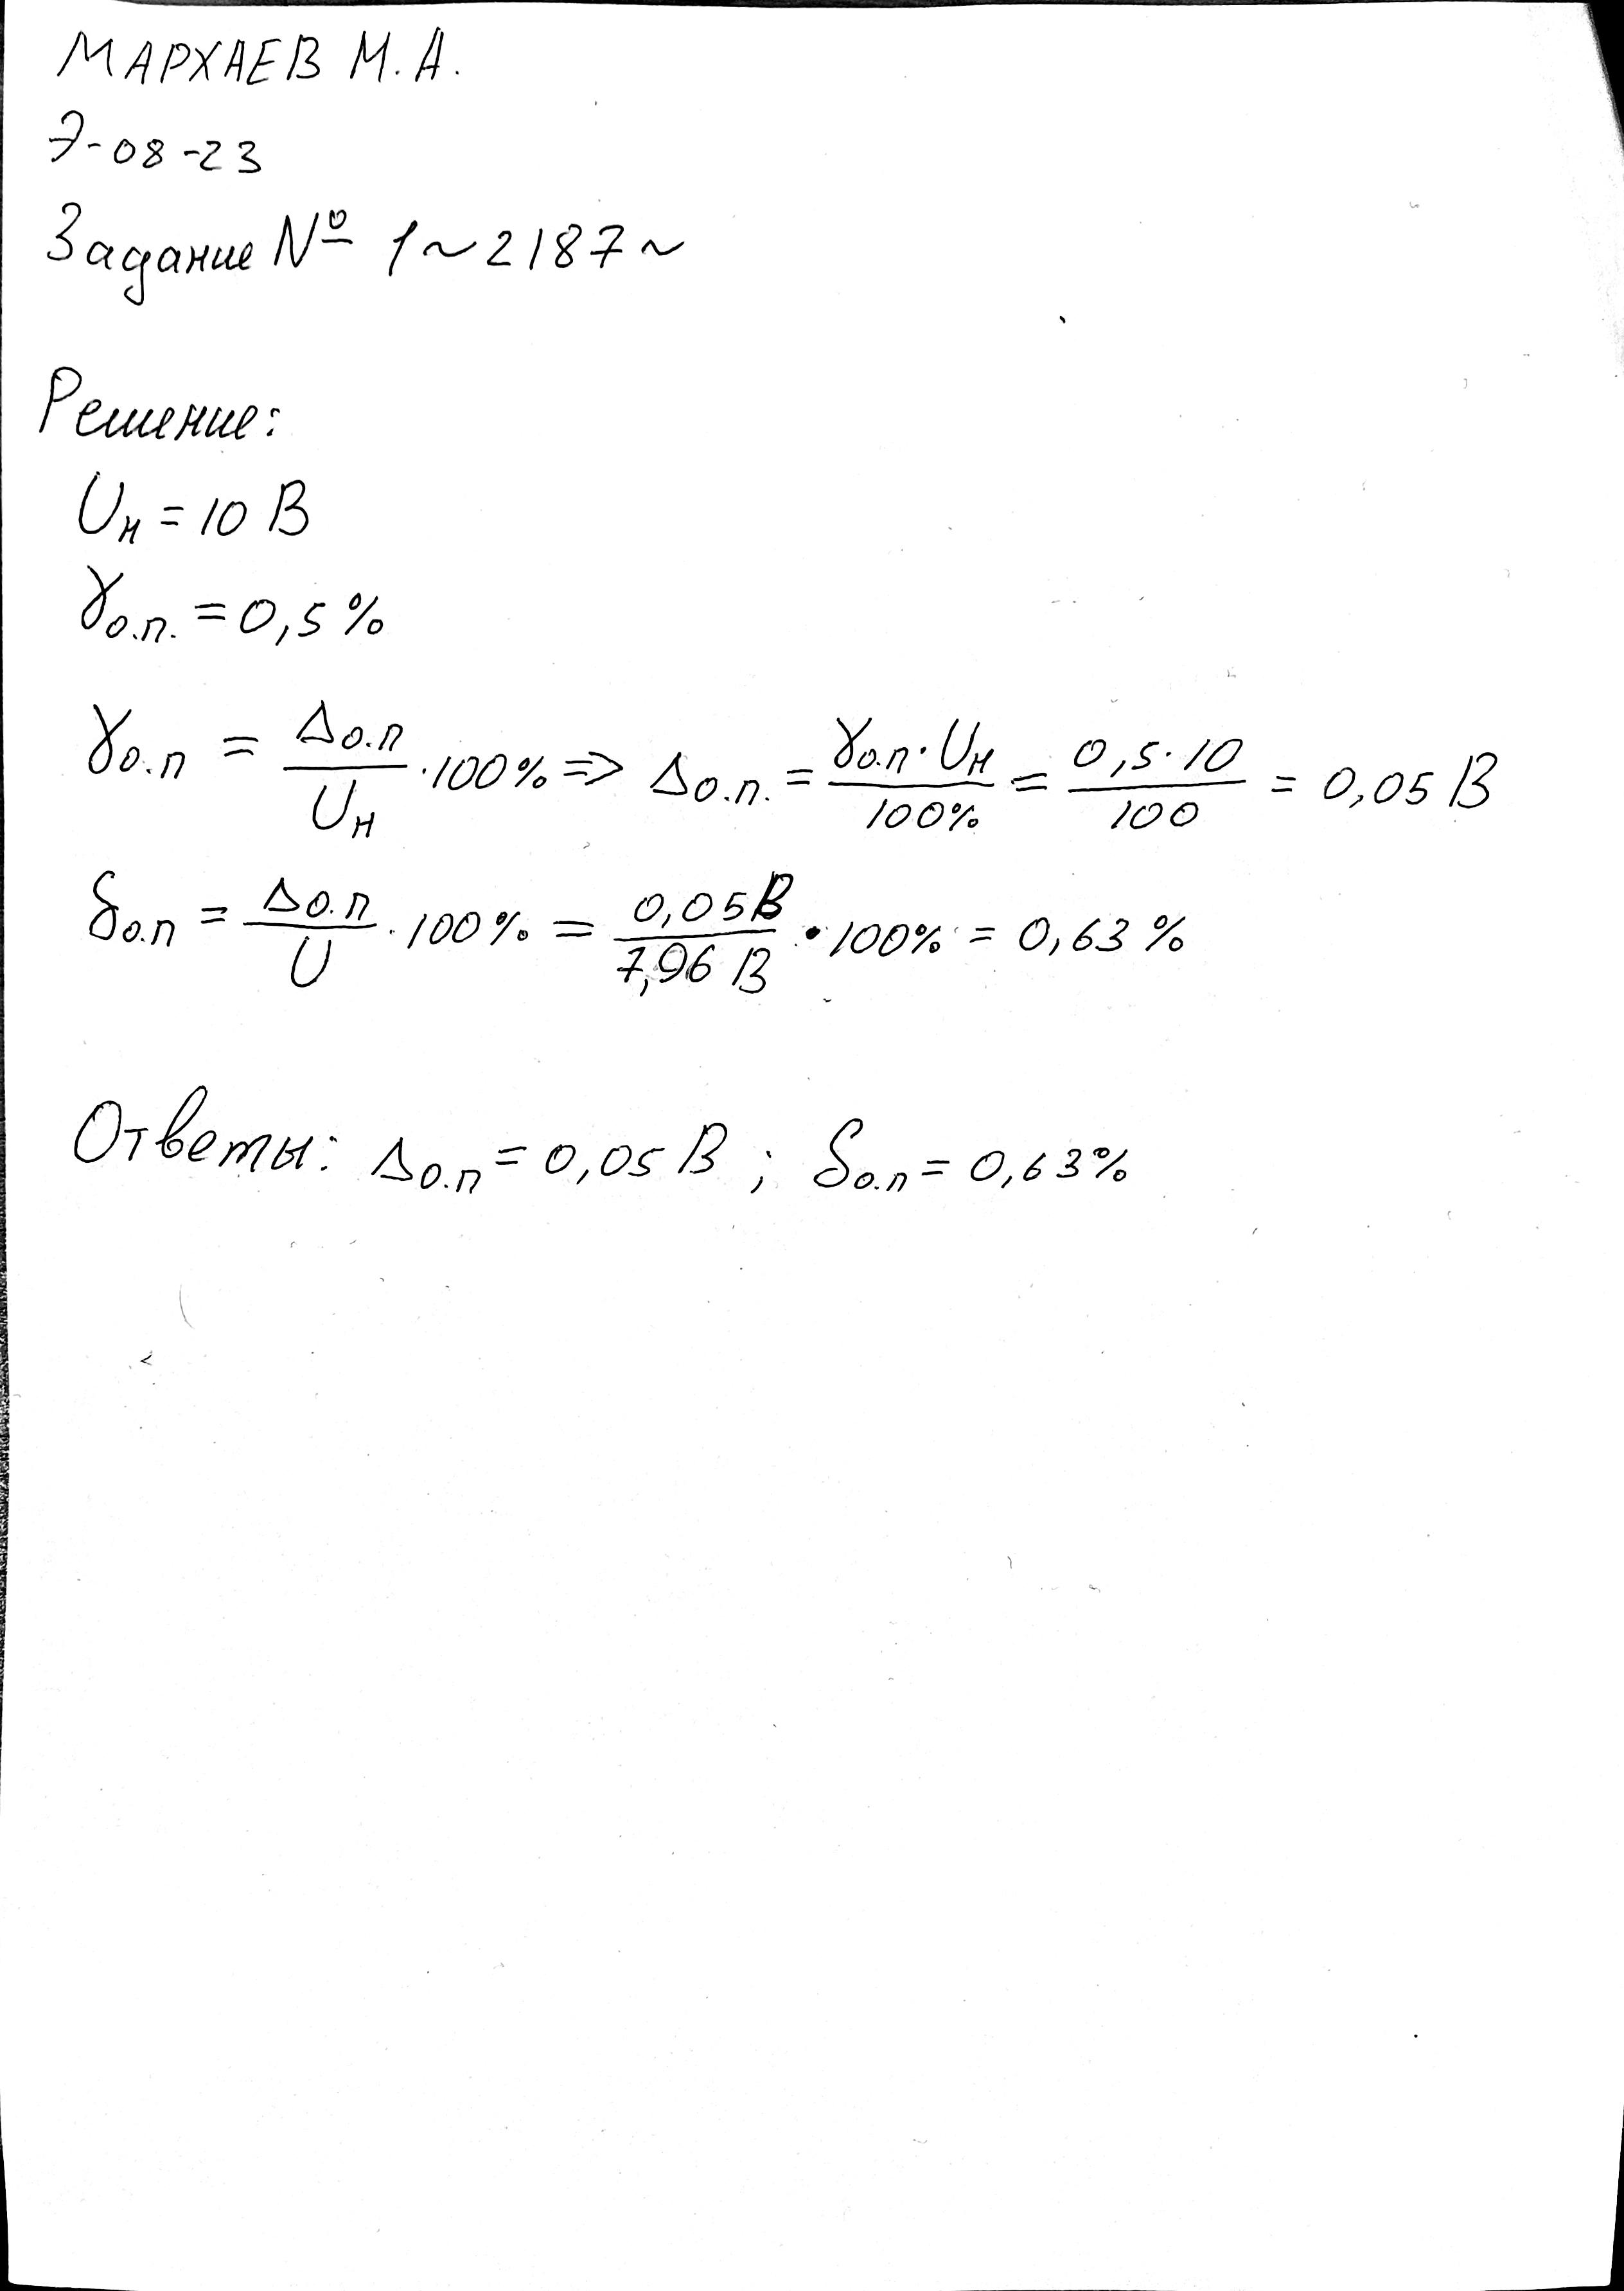 МАРХАЕВ М.А.
Э-08-23
Задание № 1~2187~
Решение:
Uн = 10 В
γо.п. = 0,5 %
γо.п = Δо.п / Uн · 100% => Δо.п. = γо.п · Uн / 100% = 0,5 · 10 / 100 = 0,05 В
δо.п = Δо.п / U · 100% = 0,05В / 7,96 В · 100% = 0,63 %
Ответы: Δо.п = 0,05 В ; δо.п = 0,63%